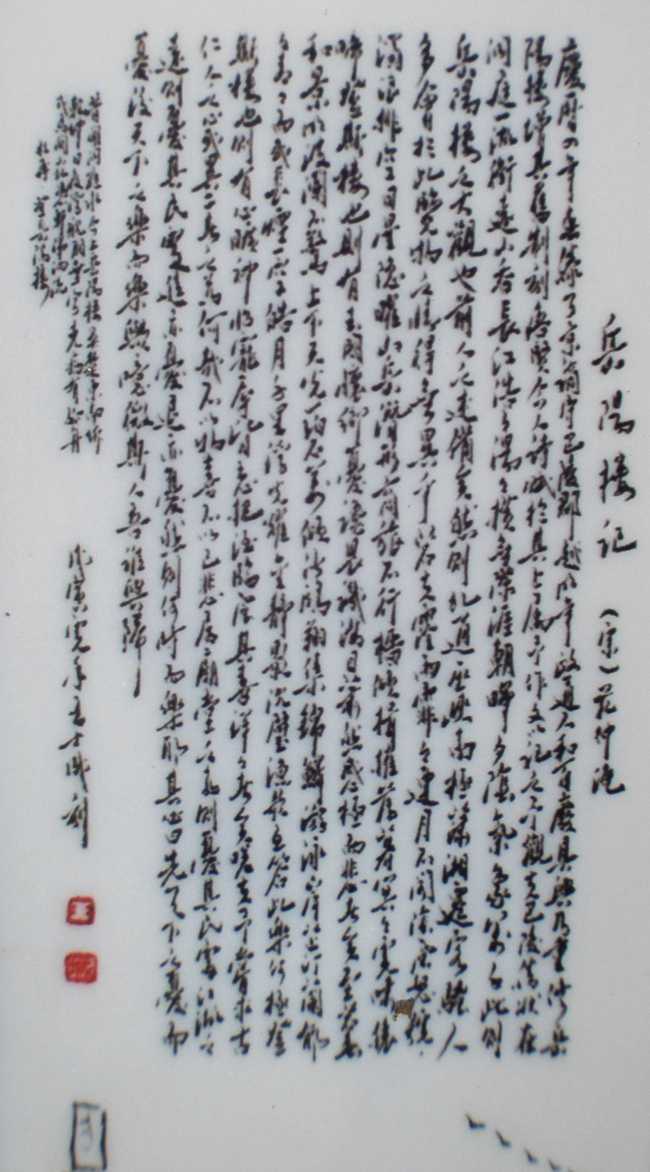 岳陽楼记 (宋)范仲淹
慶曆四年春滕子京謫守巴陵郡越明年政通人和百廢具興乃重修岳
陽楼增其舊制刻唐賢今人詩賦於其上屬予作文以記之予觀夫巴陵勝狀在
洞庭一湖銜遠山吞長江浩浩湯湯橫無際涯朝暉夕陰氣象萬千此則
岳陽楼之大觀也前人之述備矣然則北通巫峽南極瀟湘遷客騷人
多會於此覽物之情得無異乎若夫霪雨霏霏連月不開陰風怒號
濁浪排空日星隱曜山岳潛形商旅不行檣傾楫摧薄暮冥冥虎嘯猿
啼登斯楼也則有去國懷鄉憂讒畏譏滿目蕭然感極而悲者矣至若春
和景明波瀾不驚上下天光一碧萬頃沙鷗翔集錦鱗游泳岸芷汀蘭郁
郁青青而或長煙一空皓月千里浮光耀金靜影沉璧漁歌互答此樂何極登
斯楼也則有心曠神怡寵辱皆忘把酒臨風其喜洋洋者矣嗟夫予嘗求古
仁人之心或異二者之為何哉不以物喜不以己悲居廟堂之高則憂其民處江湖之
遠則憂其君是進亦憂退亦憂然則何時而樂耶其必曰先天下之憂而
憂後天下之樂而樂歟噫微斯人吾誰與歸
昔聞洞庭水今上岳陽楼吳楚東南坼
乾坤日夜浮親朋無一字老病有孤舟
戎馬關山北憑軒涕泗流
杜甫登岳陽楼